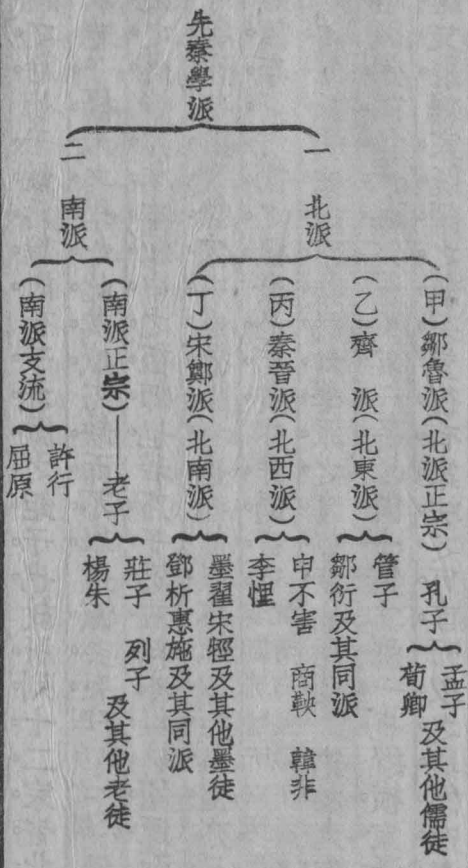 先秦學派
一 北派
(甲)鄒魯派(北派正宗) 孔子
孟子
荀卿
及其他儒徒
(乙)齊 派(北東派)
管子
鄒衍及其同派
(丙)秦晉派(北西派)
申不害 商鞅 韓非
李悝
(丁)宋鄭派(北南派)
墨翟宋牼及其他墨徒
鄧析惠施及其同派
二 南派
(南派正宗)——老子
莊子 列子
楊朱
及其他老徒
(南派支流)
許行
屈原